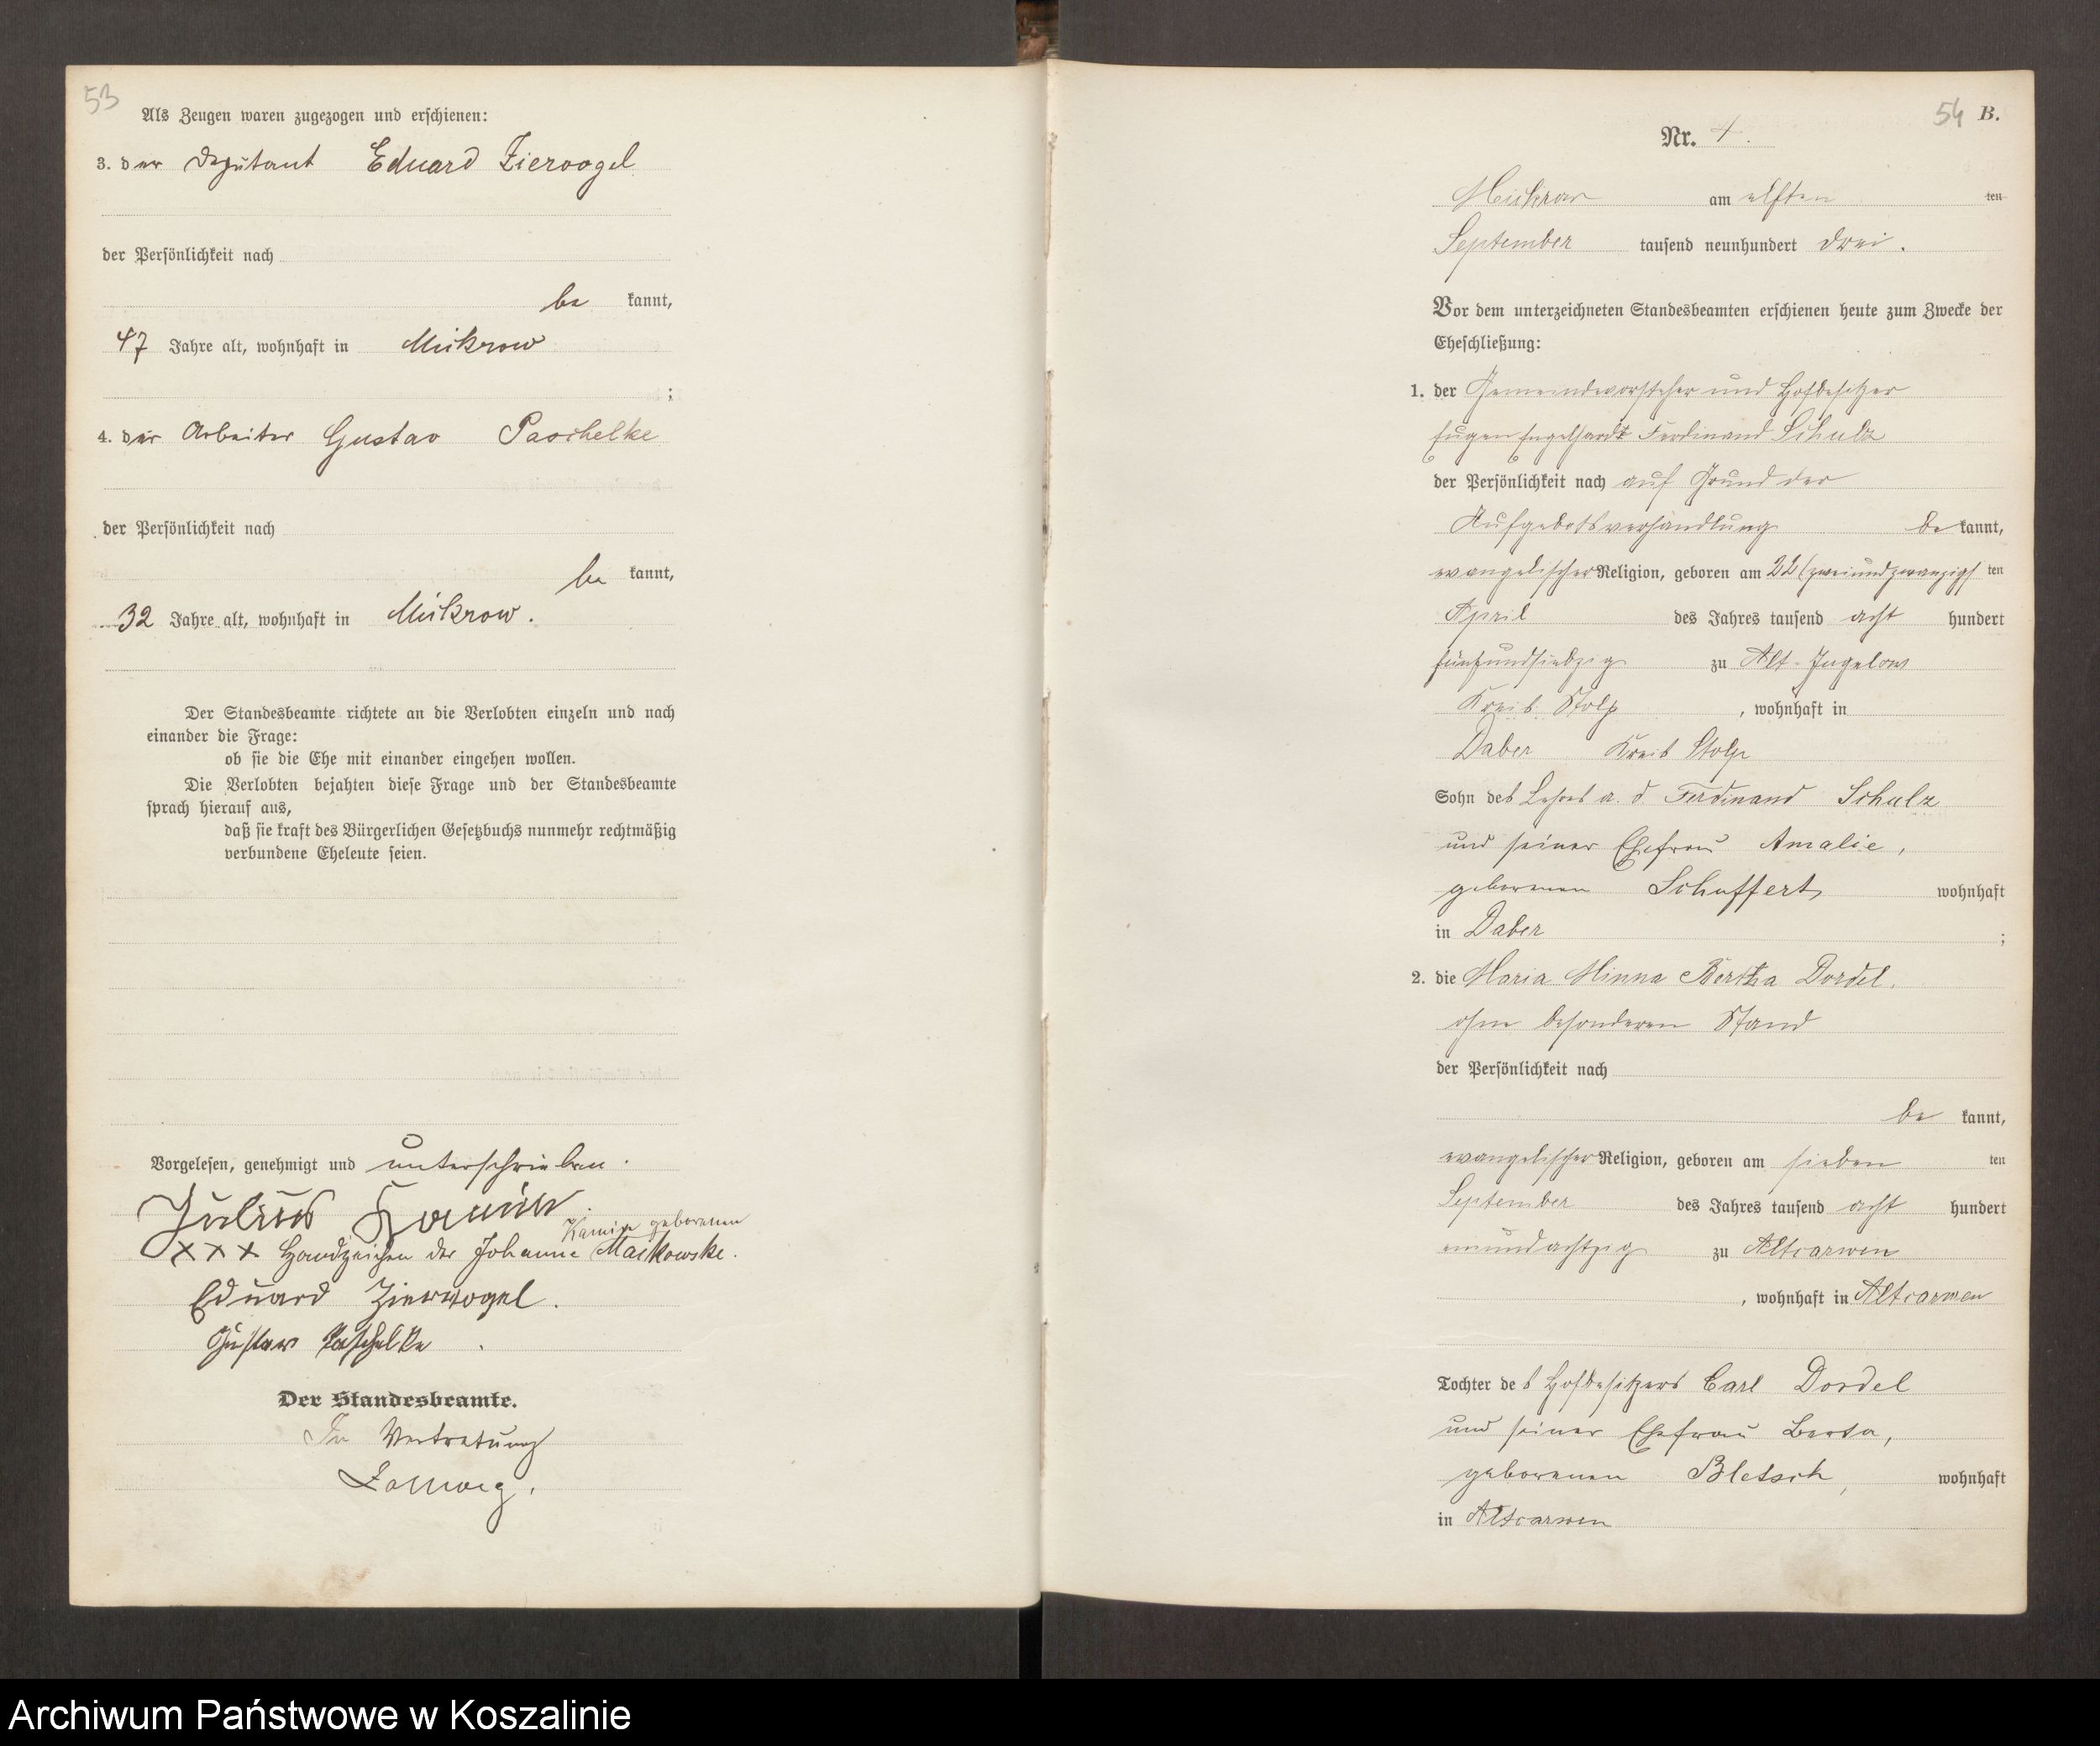 53
Als Zeugen waren zugezogen und erschienen:
3. der Deputant Eduard Ziervogel
der Persönlichkeit nach
be kannt,
47 Jahre alt, wohnhaft in Mikrow
;
4. der Arbeiter Gustav Paschelke
der Persönlichkeit nach
be kannt,
32 Jahre alt, wohnhaft in Mikrow.
Der Standesbeamte richtete an die Verlobten einzeln und nach
einander die Frage:
ob sie die Ehe mit einander eingehen wollen.
Die Verlobten bejahten diese Frage und der Standesbeamte
sprach hierauf aus,
daß sie kraft des Bürgerlichen Gesetzbuchs nunmehr rechtmäßig
verbundene Eheleute seien.
Vorgelesen, genehmigt und unterschrieben.
Julius Kamin.
Kamin geborenen
XXX Handzeichen der Johanne Matkowske.
Eduard Ziervogel.
Gustav Paschelke.
Der Standesbeamte.
In Vertretung
54 B.
Nr. 4.
Mickrow am elften ten
September tausend neunhundert drei.
Vor dem unterzeichneten Standesbeamten erschienen heute zum Zwecke der
Eheschließung:
1. der Gemeindevorsteher und Hofbesitzer
Eugen Engelhardt Ferdinand Schulz
der Persönlichkeit nach auf Grund der
Aufgebotsverhandlung be kannt,
evangelischer Religion, geboren am 22 (zweiundzwanzig) ten
April des Jahres tausend acht hundert
fünfundsiebzig zu Alt-Jugelow
Kreis Stolp, wohnhaft in
Daber Kreis Stolp
Sohn des Lehrers a. d Ferdinand Schulz
und seiner Ehefrau Amalie,
geborenen Schuffert wohnhaft
in Daber ;
2. die Maria Minna Bertha Dordel,
ohne besonderen Stand
der Persönlichkeit nach
be kannt,
evangelischer Religion, geboren am sieben ten
September des Jahres tausend acht hundert
einundachtzig zu Altcarwen
, wohnhaft in Altcarwen
Tochter des Hofbesitzers Carl Dordel
und seiner Ehefrau Berta,
geborenen Bletsch, wohnhaft
in Altcarwen
Archiwum Państwowe w Koszalinie